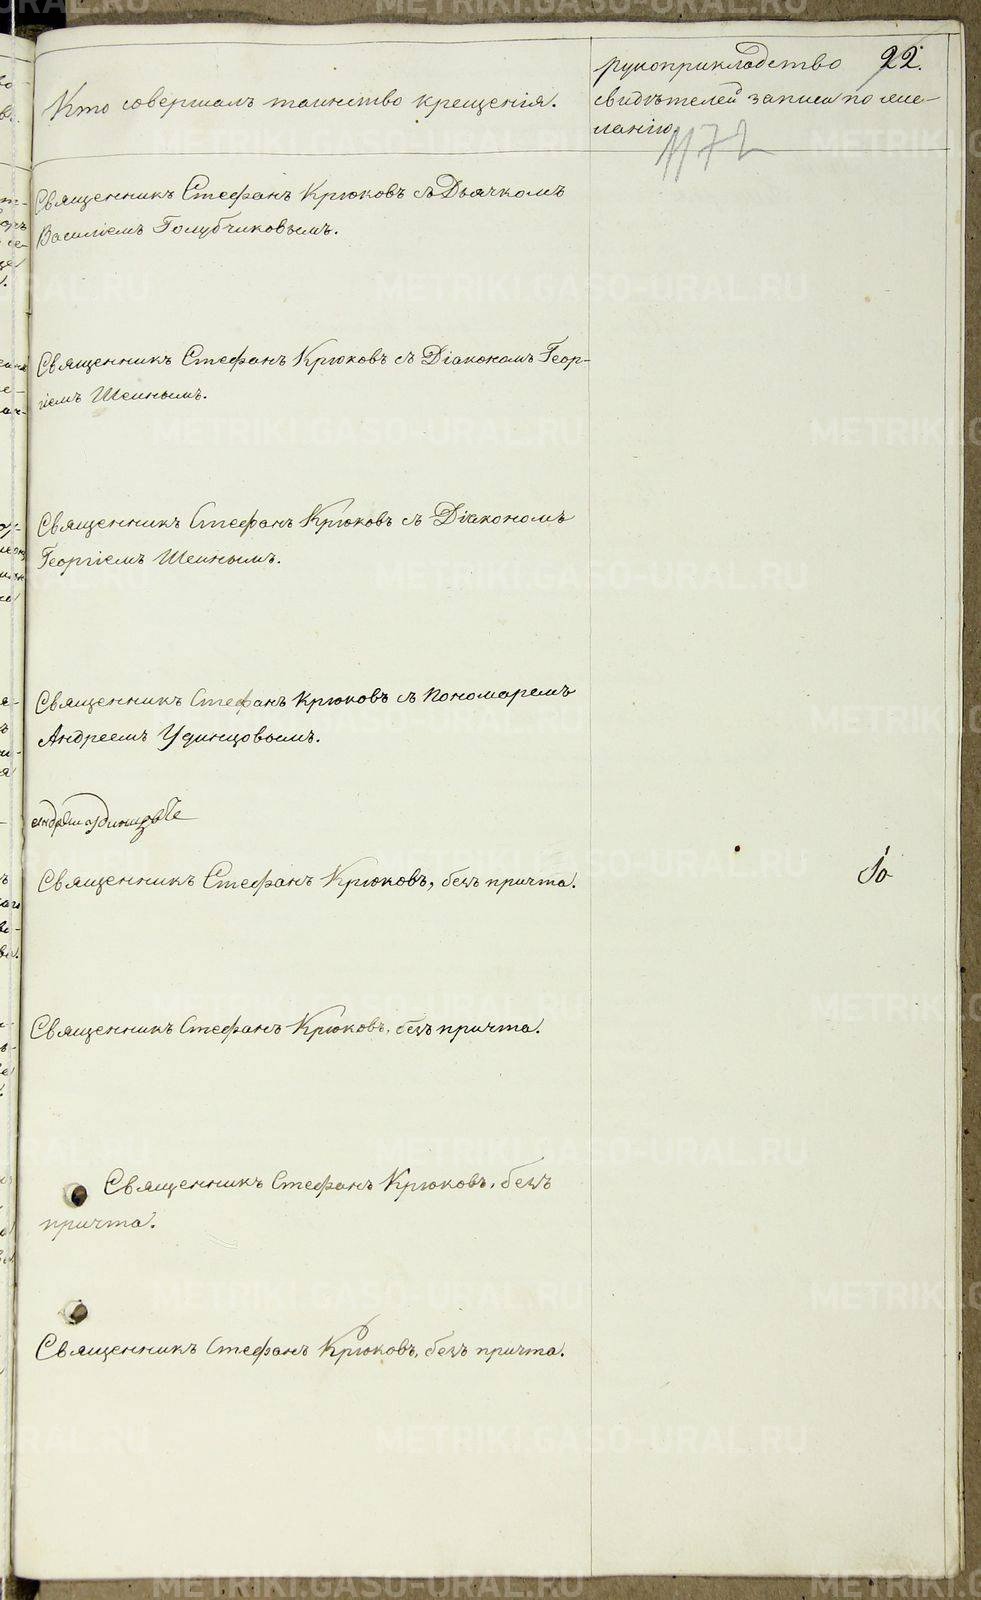 22.
Кто совершалъ таинство крещенія.
рукоприкладство
свидѣтелей записи по же-
ланію
1172
Священникъ Стефанъ Крюковъ съ Дьячкомъ
Василіемъ Голубчиковымъ.
Священникъ Стефанъ Крюковъ съ Діакономъ Геор-
гіемъ Шеинымъ.
Священникъ Стефанъ Крюковъ съ Діакономъ
Георгіемъ Шеинымъ.
Священникъ Стефанъ Крюковъ съ Пономаремъ
Андреемъ Удинцовымъ.
Священникъ Стефанъ Крюковъ, безъ причта.
Священникъ Стефанъ Крюковъ, безъ причта.
Священникъ Стефанъ Крюковъ, безъ
причта.
Священникъ Стефанъ Крюковъ, безъ причта.
METRIKI.GASO-URAL.RU